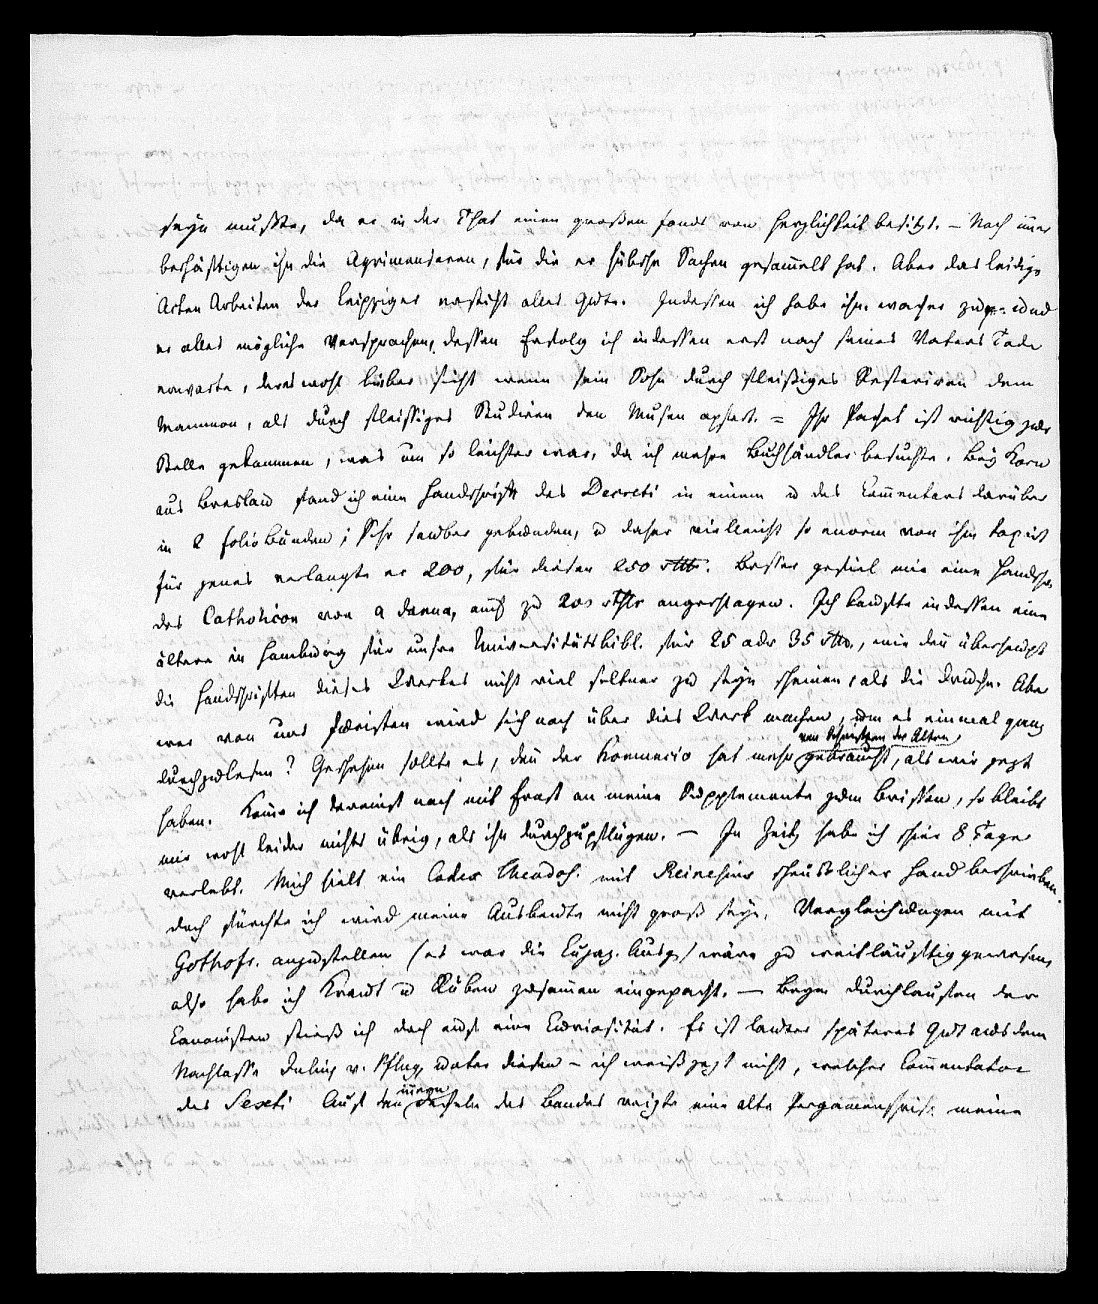 seyn mußte, da er in der That einen großen Fonds von Herzlichkeit besitzt. – Noch im̄er
beschäftigen ihn die Agrimensoren, für die er hübsche Sachen gesam̄elt hat. Aber das leidige
Acten Arbeiten der Leipziger erstickt alles Gute. Indessen ich habe ihm wacker und
er alles mögliche versprochen, dessen Erfolg ich indessen erst nach seines Vaters Tode
erwarte, der es wohl lieber sieht wenn sein Sohn durch fleißiges Referiren dem
Mammon, als durch fleissiges Studiren den Musen opfert. = Ihr Packet ist richtig zur
Stelle gekommen, was um so leichter war, da ich mehre Buchhändler besuchte. Bey Korn
aus Breslau fand ich eine Handschrift des Decreti in einem u des Com̄entars darüber
in 2 Folio Bänden; sehr sauber gebunden, u daher vielleicht so enorm von ihm taxirt
für jenes verlangte er 200, für diesen 250 rthlr. Besser gefiel mir eine Handschr.
des Catholicon von a Janua, auch zu 200 rthlr angeschlagen. Ich kaufte indessen eine
ältere in Hamburg für unsre Universitätsbibl. für 25 oder 35 rthlr., wie den̄ überhaupt
die Handschriften dieses Werkes nicht viel seltner zu seyn scheinen, als die Drucke. Aber
wer von uns Juristen wird sich noch über dies Werk machen, um es einmal ganz
durchzulesen? Geschehen sollte es, den̄ der hat mehr von Schriften der Alten gebraucht, als wir jezt
haben. Kom̄e ich dereinst noch mit Ernst an meine Supplemente zum Brisson, so bleibt
mir wohl leider nichts übrig, als ihn durchzupflügen. – In Zeitz habe ich schier 8 Tage
verlebt. Mich hielt ein Codex Theodos. mit Reinesius scheuslicher Hand beschrieben.
doch fürchte ich wird meine Ausbeute nicht groß seyn. Vergleichungen mit
Gothofr. anzustellen (es war die Cujaz. Ausg.) wäre zu weitläuftig gewesen,
also habe ich Kraut u Rüben zusam̄en eingepackt. – Beym Durchlaufen der
Canonisten stieß ich doch auf eine Curiosität. Es ist lauter späteres Gut aus dem
Nachlasse Julius v. Pflug, unter diesen – ich weiß jezt nicht, welcher Com̄entator
des Sexti Auf den in̄ern Deckeln des Bandes reizte eine alte Pergamentschrift meine